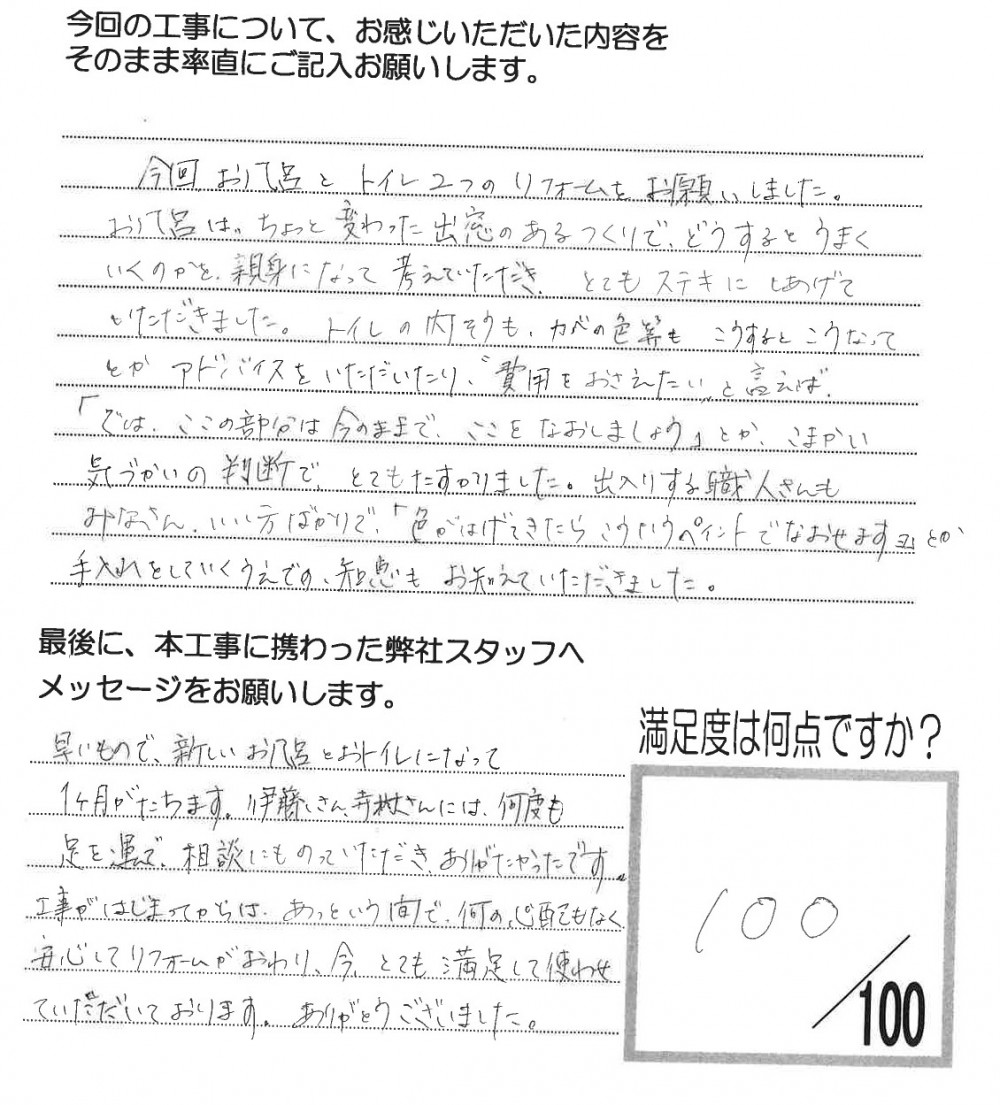 今回の工事について、お感じいただいた内容を
そのまま率直にご記入お願いします。
今回、お風呂と トイレ 2つの リフォームを お願いしました。
お風呂は、ちょっと 変わった 出窓の あるつくりで、どうすると うまく
いくのかを、親身になって 考えていただき、とてもステキに しあげて
いただきました。トイレの 内そうも、カベの色等も こうすると こうなって
とか アドバイスを いただいたり、“費用を おさえたい„ と 言えば、
「では、ここの部分は 今のままで、ここを なおしましょう」とか、こまかい
気づかいの 判断で、とてもたすかりました。出入りする職人さんも
みなさん、いい方ばかりで、「色がはげてきたら こういうペイントでなおせますョ」とか
手入れをしていくうえでの、知恵も お知えていただきました。
最後に、本工事に携わった弊社スタッフへ
メッセージをお願いします。
早いもので、新しい お風呂 とおトイレになって
1ヶ月がたちます。伊藤さん、寺村さんには、何度も
足を運んで、相談にものっていただき、ありがたかったです。
工事がはじまってからは、あっという間で、何の心配もなく
安心してリフォームがおわり、今、とても 満足して使わせ
ていただいております。ありがとうございました。
満足度は何点ですか？
100
/100